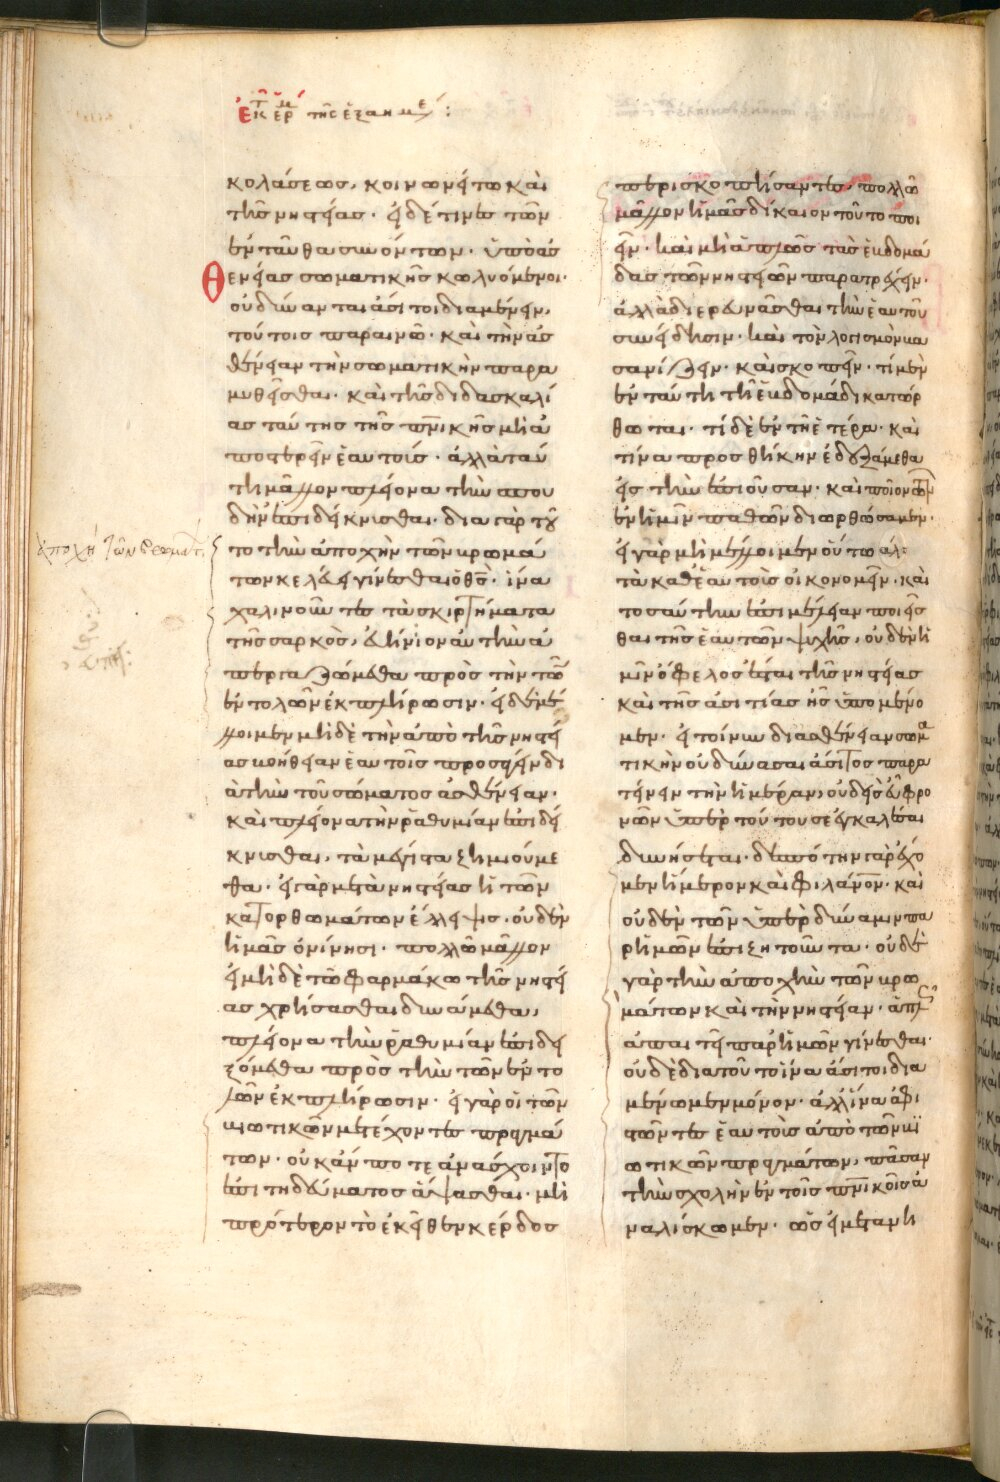 ἐκ τ ἑρμ τῆς ἑξαημέ :
κολάσεως, κοινωνείτω καὶ
τῆς νηστείας. εἰ δέ τινες τῶν
ἐνταῦθα συνιόντων. ὑπὸ ἀσ
θενείας σωματικῆς κωλυόμενοι.
οὐ δύνανται ἄσιτοι διαμένειν,
τούτοις παραινῶ. καὶ τὴν ἀσ
θένειαν τὴν σωματικὴν παρα
μυθεῖσθαι. καὶ τῆς διδασκαλί
ας ταύτης τῆς πνικῆς μὴ ἀ
ποστερεῖν ἑαυτούς. ἀλλὰ ταύ
τη μᾶλλον πλείονα τὴν σπου
δὴν ἐπιδείκνυσθαι. διὰ γὰρ τοῦ
το τὴν ἀποχὴν τῶν βρωμά
των κελεύει γίνεσθαι ὁ θς. ἵνα
χαλινοῦντες τὰ σκιρτήματα
τῆς σαρκὸς, εὐήνιον αὐτὴν ἀ
περγαζώμεθα πρὸς τὴν τῶν
ἐντολῶν ἐκπλήρωσιν. εἰ δὲ μέ
λλοιμεν μηδὲ τὴν ἀπὸ τῆς νηστεί
ας βοήθειαν ἑαυτοῖς προσάγειν δι
ὰ τὴν τοῦ σώματος ἀσθένειαν.
καὶ πλείονα τὴν ῥαθυμίαν ἐπιδεί
κνυσθαι, τὰ μέγιστα ζημιούμε
θα. εἰ γὰρ μετὰ νηστείας ἡ τῶν
κατορθωμάτων ἔλλειψις. οὐδὲν
ἡμᾶς ὀνίνησι. πολλῶ μᾶλλον
εἰ μηδὲ τῶ φαρμάκω τῆς νηστεί
ας χρήσασθαι δυνάμεθα,
πλείονα τὴν ῥαθυμίαν ἐπιδει
ξόμεθα πρὸς τὴν τῶν ἐντο
λῶν ἐκπλήρωσιν. εἰ γὰρ οἱ τῶν
βιωτικῶν μετέχοντες πραγμά
των. οὐκ ἄν ποτε ἀνάσχοιντο
ἐπιτηδεύματος ἅψασθαι. μὴ
πρότερον τὸ ἐκεῖθεν κέρδος
περισκοπήσαντες, πολλῶ
μᾶλλον ἡμᾶς δίκαιον τοῦτο ποι
εῖν. καὶ μὴ ἁπλῶς τὰς ἑβδομά
δας τῶν νηστειῶν παρατρέχειν.
ἀλλὰ διερευνᾶσθαι τὴν ἑαυτοῦ
συνείδησιν. καὶ τὸν λογισμὸν βα
σανίζειν. καὶ σκοπεῖν. τί μὲν
ἐν ταύτη τῆ ἑβδομάδι κατώρ
θωται. τί δὲ ἐν τῆ ἑτέρα. καὶ
τίνα προσθήκην ἐδεξάμεθα
εἰς τὴν ἐπιοῦσαν. καὶ ποῖον τῶν
ἐν ἡμῖν παθῶν διωρθώσαμεν.
εἰ γὰρ μὴ μέλλοιμεν οὕτω
τὰ καθ ἑαυτοὺς οἰκονομεῖν. καὶ
τοσαύτην ἐπιμέλειαν ποιεῖσ
θαι τῆς ἑαυτῶν ψυχῆς, οὐδὲν ἡ
μῖν ὄφελος ἔσται τῆς νηστείας
καὶ τῆς ἀσιτίας ἧς ὑπομένο
μεν. εἰ τοίνυν δι ἀσθένειαν σωμα
τικὴν οὐ δύνασαι ἄσιτος παρα
τείνειν τὴν ἡμέραν, οὐδεὶς εὖ φρο
νῶν ὑπὲρ τούτου σε ἐγκαλέσαι
δυνήσεται. δεσπότην γὰρ ἔχο
μεν ἥμερον καὶ φιλάνον. καὶ
οὐδὲν τῶν ὑπὲρ δύναμιν πα
ρ ἡμῶν ἐπιζητοῦντα. οὐδὲ
γὰρ τὴν ἀποχὴν τῶν βρω
μάτων καὶ τὴν νηστείαν. ἁπλῶς
ἀπαιτεῖ παρ ἡμῶν γίνεσθαι.
οὐδὲ διὰ τοῦτο ἵνα ἄσιτοι δια
μένωμεν μόνον. ἀλλ ἵνα ἀφι
στῶντες ἑαυτοὺς ἀπὸ τῶν βι
ωτικῶν πραγμάτων, πᾶσαν
τὴν σχολὴν ἐν τοῖς πνικοῖς ἀ
ναλίσκωμεν. ὡς εἰ μετὰ νη
ἀποχὴ τῶν βρωμάτ.